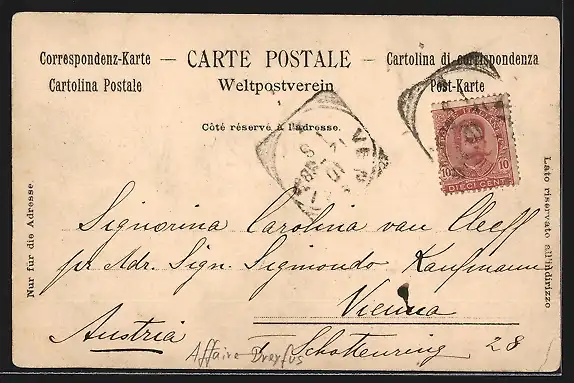 Correspondenz-Karte — CARTE POSTALE — Cartolina di corrispondenza
Cartolina Postale Weltpostverein Post-Karte
Côté réservé à l'adresse.
10 10
DIECI CENT.
Nur für die Adresse.
Lato riservato all'indirizzo
Signorina Carolina van Cleeff
pr Adr. Sign. Sigmondo Kaufmann
Vienna
Austria Schottenring 28
Affaire Dreyfus